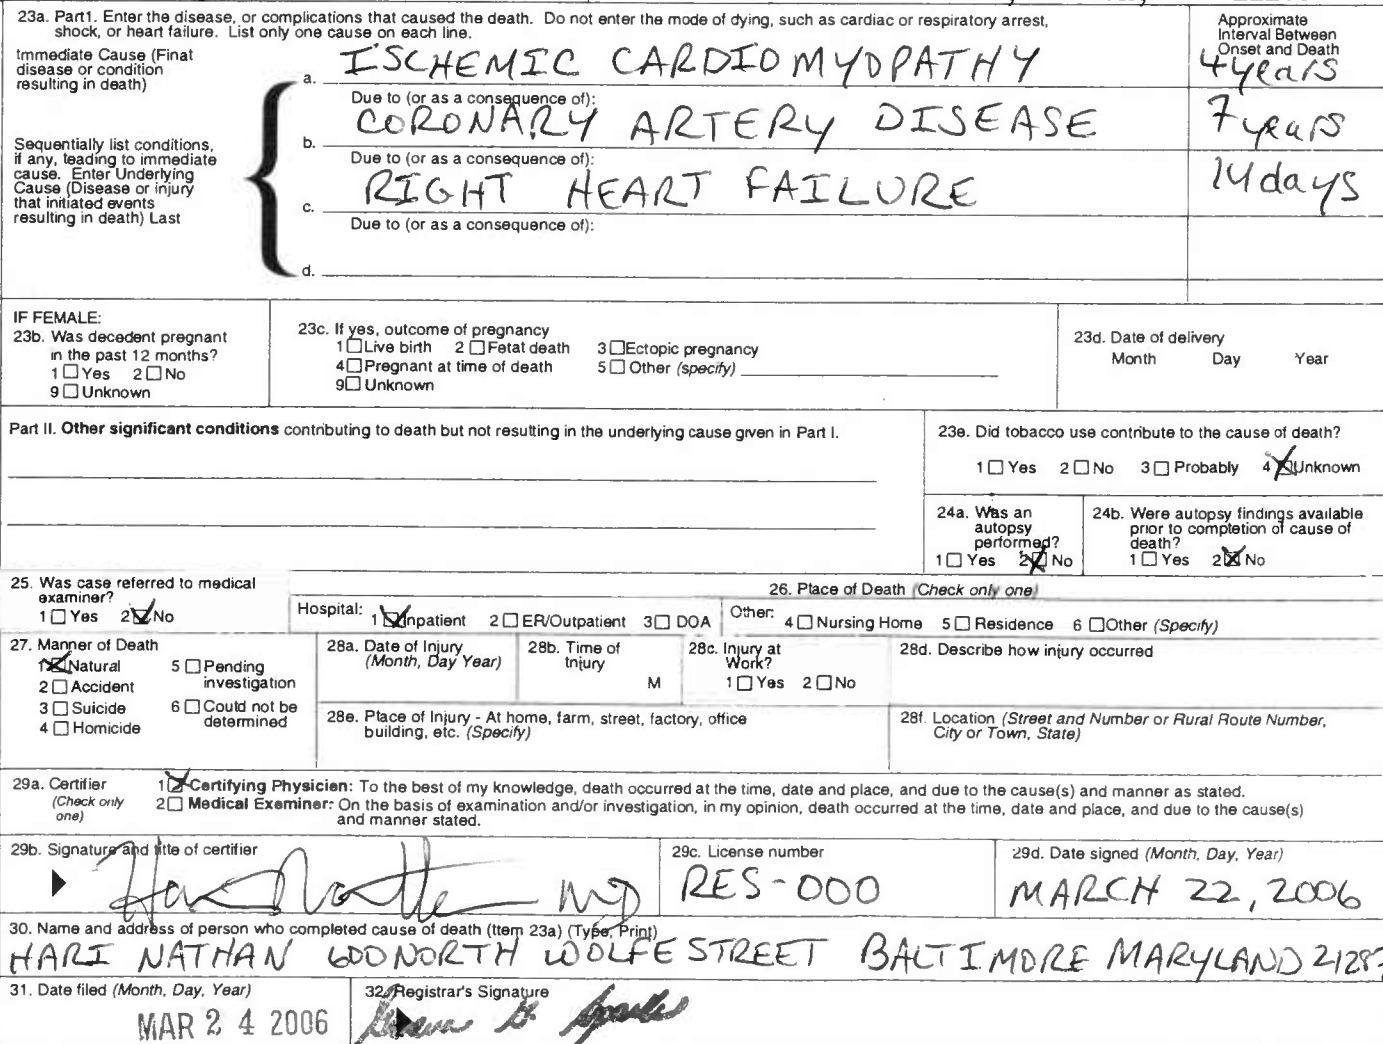 23a. Part1. Enter the disease, or complications that caused the death. Do not enter the mode of dying, such as cardiac or respiratory arrest,
shock, or heart failure. List only one cause on each line.
Approximate
Interval Between
Onset and Death
Immediate Cause (Final
disease or condition
resulting in death)
a. ISCHEMIC CARDIOMYOPATHY 4 years
Due to (or as a consequence of):
b. CORONARY ARTERY DISEASE 7 years
Sequentially list conditions,
if any, leading to immediate
cause. Enter Underlying
Cause (Disease or injury
that initiated events
resulting in death) Last
Due to (or as a consequence of):
c. RIGHT HEART FAILURE 14 days
Due to (or as a consequence of):
d.
IF FEMALE:
23b. Was decedent pregnant
in the past 12 months?
1 Yes 2 No
9 Unknown
23c. If yes, outcome of pregnancy
1 Live birth 2 Fetal death 3 Ectopic pregnancy
4 Pregnant at time of death 5 Other (specify)
9 Unknown
23d. Date of delivery
Month Day Year
Part II. Other significant conditions contributing to death but not resulting in the underlying cause given in Part I.
23e. Did tobacco use contribute to the cause of death?
1 Yes 2 No 3 Probably 4 Unknown
24a. Was an
autopsy
performed?
1 Yes 2 No
24b. Were autopsy findings available
prior to completion of cause of
death?
1 Yes 2 No
25. Was case referred to medical
examiner?
1 Yes 2 No
26. Place of Death (Check only one)
Hospital: 1 Inpatient 2 ER/Outpatient 3 DOA
Other: 4 Nursing Home 5 Residence 6 Other (Specify)
27. Manner of Death
1 Natural 5 Pending
investigation
2 Accident
3 Suicide 6 Could not be
determined
4 Homicide
28a. Date of Injury
(Month, Day Year)
28b. Time of
Injury
M
28c. Injury at
Work?
1 Yes 2 No
28d. Describe how injury occurred
28e. Place of Injury - At home, farm, street, factory, office
building, etc. (Specify)
28f. Location (Street and Number or Rural Route Number,
City or Town, State)
29a. Certifier
(Check only
one)
1 Certifying Physician: To the best of my knowledge, death occurred at the time, date and place, and due to the cause(s) and manner as stated.
2 Medical Examiner: On the basis of examination and/or investigation, in my opinion, death occurred at the time, date and place, and due to the cause(s)
and manner stated.
29b. Signature and title of certifier
Hari Nathan MD
29c. License number
RES-000
29d. Date signed (Month, Day, Year)
MARCH 22, 2006
30. Name and address of person who completed cause of death (Item 23a) (Type, Print)
HARI NATHAN 600 NORTH WOLFE STREET BALTIMORE MARYLAND 21287
31. Date filed (Month, Day, Year)
MAR 24 2006
32. Registrar's Signature